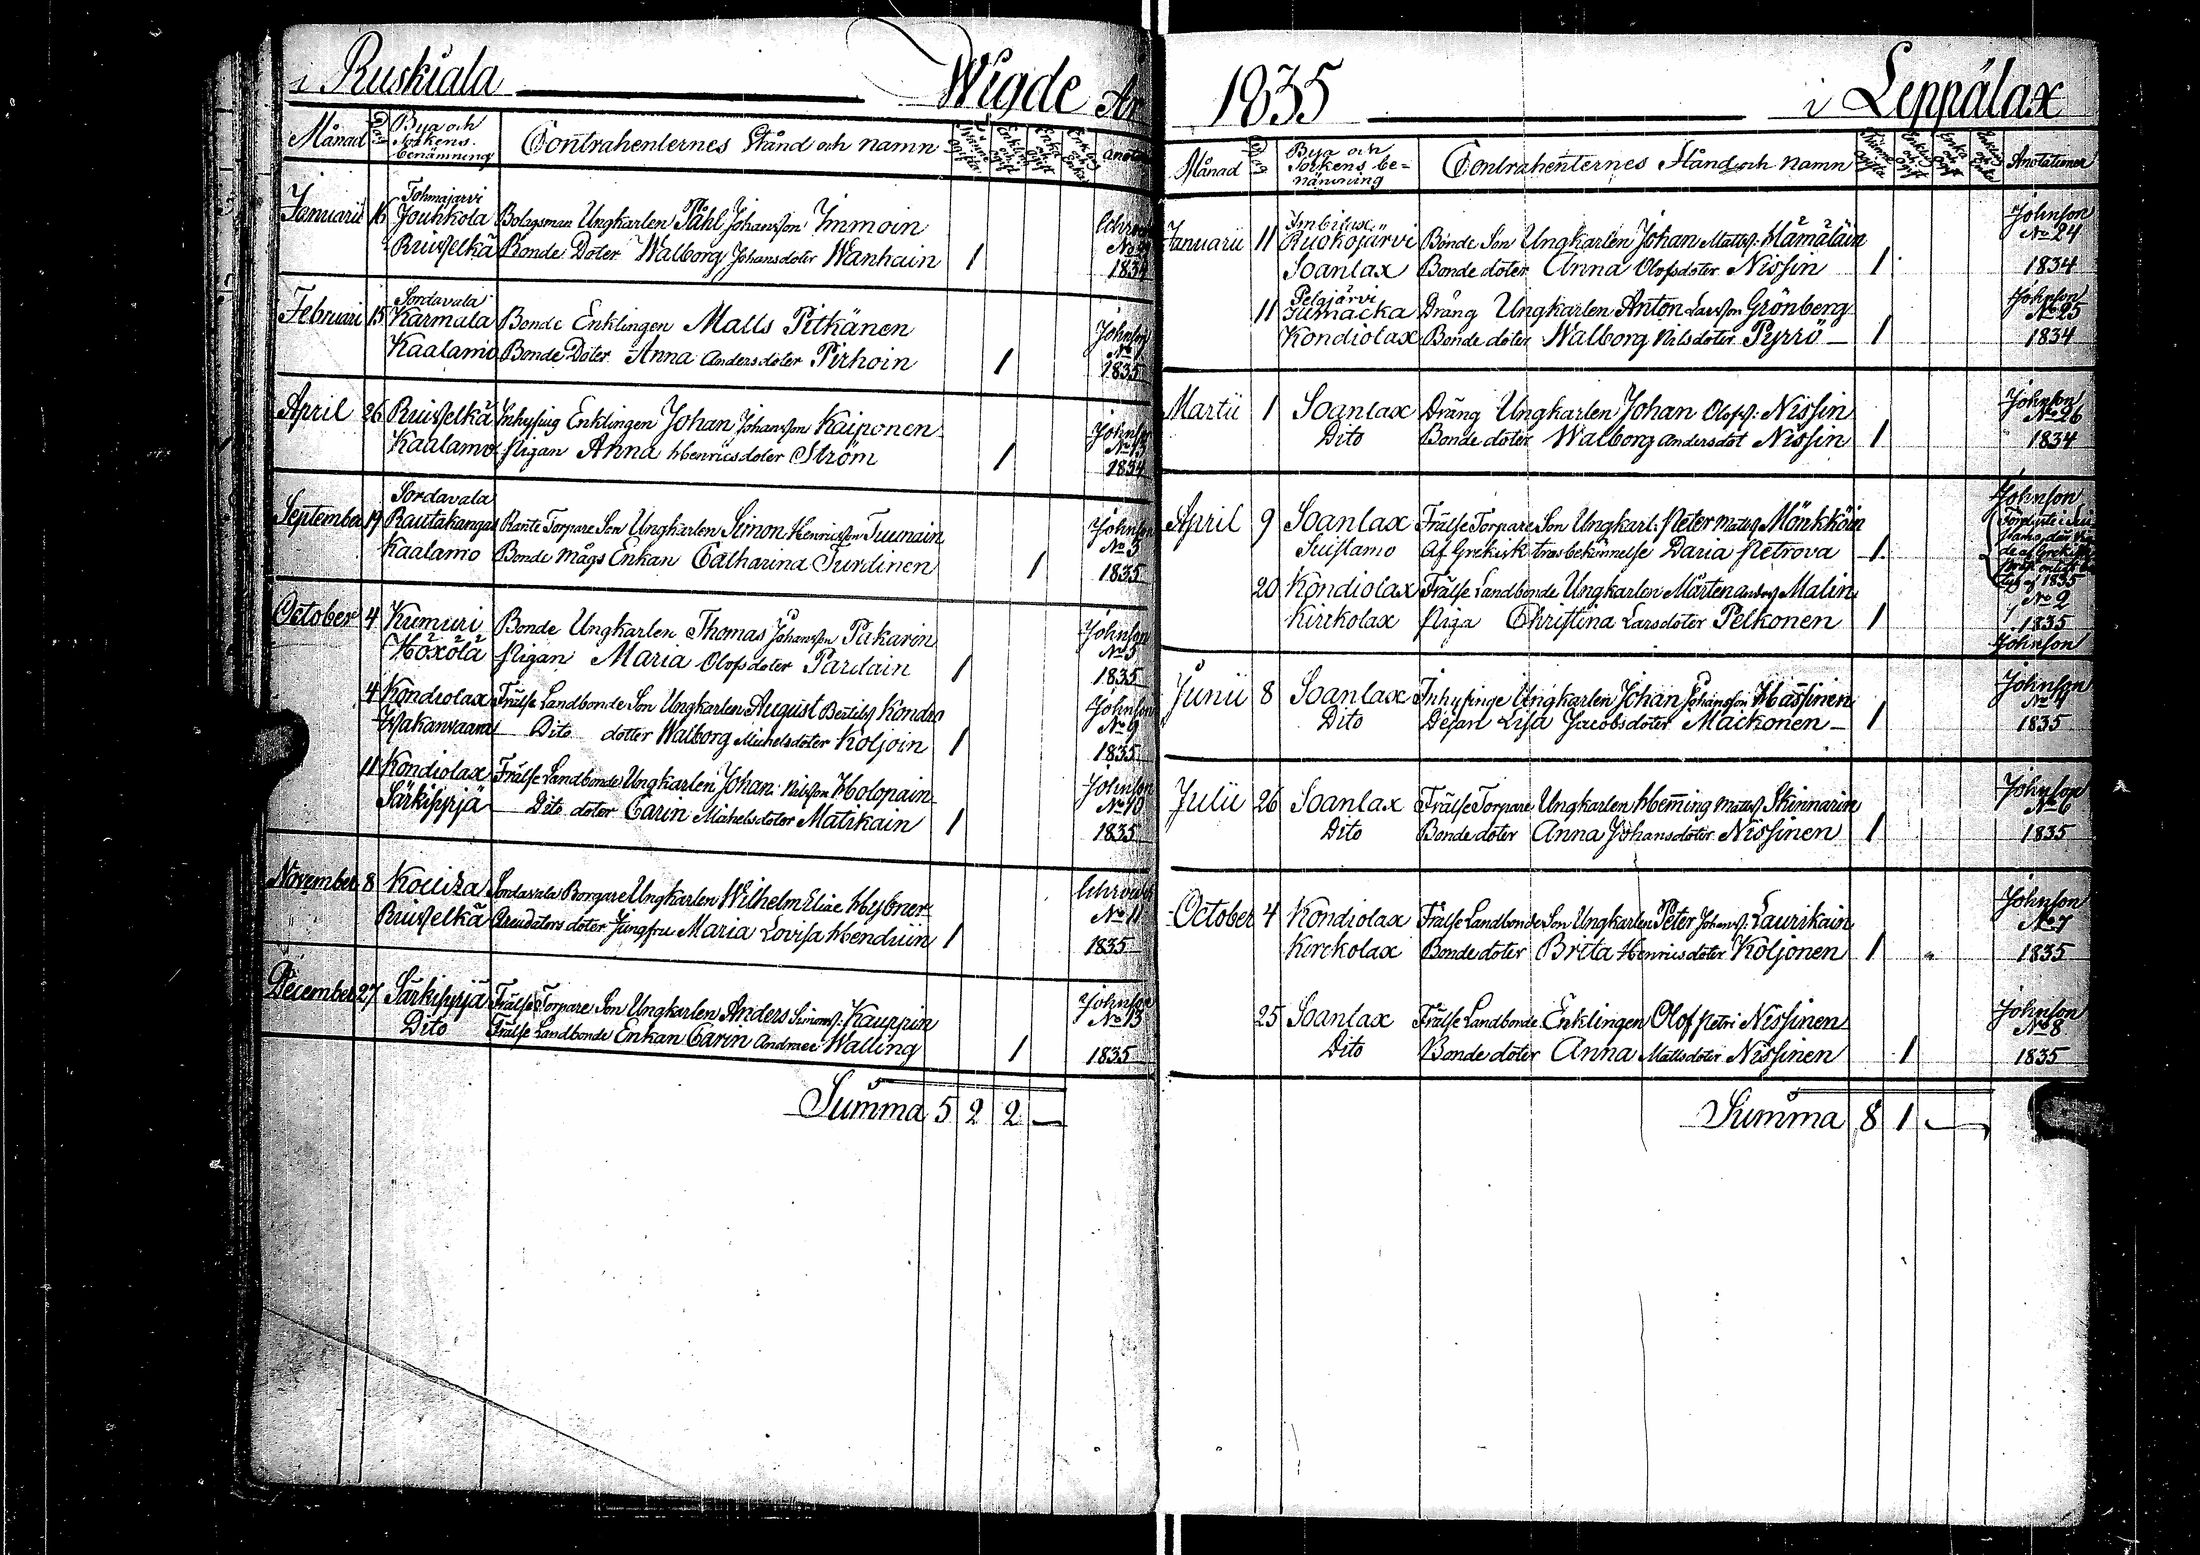 i Ruskiala Wigde År
Månad Dag Bya och Sokens benämning Contrahenternes Stånd och namn
Tohmajarvi
Januarii 16 Jouhkola Bolagsman Ungkarlen Påhl Johansson Immoin
Ruisselkä Bonde Doter Walborg Johansdoter Wanhain 1
1834
Sordavala
Februari 15 Karmala Bonde Enklingen Matts Pitkänen Johnson
Kaalamo Bonde Doter Anna Andersdoter Pirhoin 1
1835
April 26 Ruisselkä Inhysing Enklingen Johan Johansson Kaiponen Johnson
Kaalamo Pigan Anna Henricsdoter Ström 1
1834
Sordavala
September 19 Rautakangas Rante Torpare Son Ungkarlen Simon Henricsson Tuumain Johnson
Kaalamo Bonde Mågs Enkan Catharina Turdinen 1 No 3
1835
October 4 Kumuri Bonde Ungkarlen Thomas Johansson Pakarin Johnson
Höxölä Pigan Maria Olofsdoter Pardain 1 No 5
1835
4 Kondiolax Frälse Landbonde Son Ungkarlen August Bertilss Kondia Johnson
Hakanvaara Dito dotter Walborg Michelsdoter Koljoin 1 No 9
1835
11 Kondiolax Frälse Landbonde Ungkarlen Johan Nilsson Holopain Johnson
Särkisyrjä Dito doter Carin Michelsdoter Matikain 1 No 10
1835
November 8 Kouiza Sordavala Borgare Ungkarlen Wilhelm Eliae Hybner
Ruisselkä Arendators doter Jungfru Maria Lovisa Hendriin 1 No 11
1835
December 27 Särkisyrjä Frälse Torpare Son Ungkarlen Anders Simonss: Kauppin Johnson
Dito Frälse Landbonde Enkan Carin Andraee Walling 1 No 13
1835
Summa 5 2 2 —
1835 i Leppälax
Månad Dag Bya och Sokens benämning Contrahenternes Stånd och namn Anotationer
Imbilax Johnson
Januarii 11 Ruokojärvi Bonde Son Ungkarlen Johan Mattss: Hämäläin No 24
Soanlax Bonde doter Anna Olofsdoter Nissin 1 1834
Pelgjärvi Johnson
11 Drång Ungkarlen Anton Larsson Grönberg No 25
Kondiolax Bonde doter Walborg Nilsdoter Pyrrö 1 1834
Martii 1 Soanlax Dräng Ungkarlen Johan Olofss: Nissin Johnson No 26
Dito Bonde doter Walborg Andersdot Nissin 1 1834
Johnson
April 9 Soanlax Frälse Torpare Son Ungkarl: Peter Matss Mönkköin
Suistamo Af Grekisk trosbekännelse Daria Petrova 1
20 Kondiolax Frälse Landbonde Ungkarlen Mårten Anderss Malin No 2
Kirckolax Piga Christina Larsdoter Pelkonen 1 1835
Johnson
Junii 8 Soanlax Inhysinge Ungkarlen Johan Johansson Hassinen Johnson No 4
Dito Dejan Lisa Jacobsdoter Maickonen 1 1835
Julii 26 Soanlax Frälse Torpare Ungkarlen Heming Matss Skinnarin Johnson No 6
Dito Bonde doter Anna Johansdoter Nissinen 1 1835
October 4 Kondiolax Frälse Landbonde Son Ungkarlen Peter Johanss: Laurikain Johnson No 7
Kirckolax Bonde doter Brita Henricsdoter Koljonen 1 1835
25 Soanlax Frälse Landbonde Enklingen Olof Petri Nissinen Johnson No 8
Dito Bonde doter Anna Mattsdoter Nissinen 1 1835
Summa 8 1 —